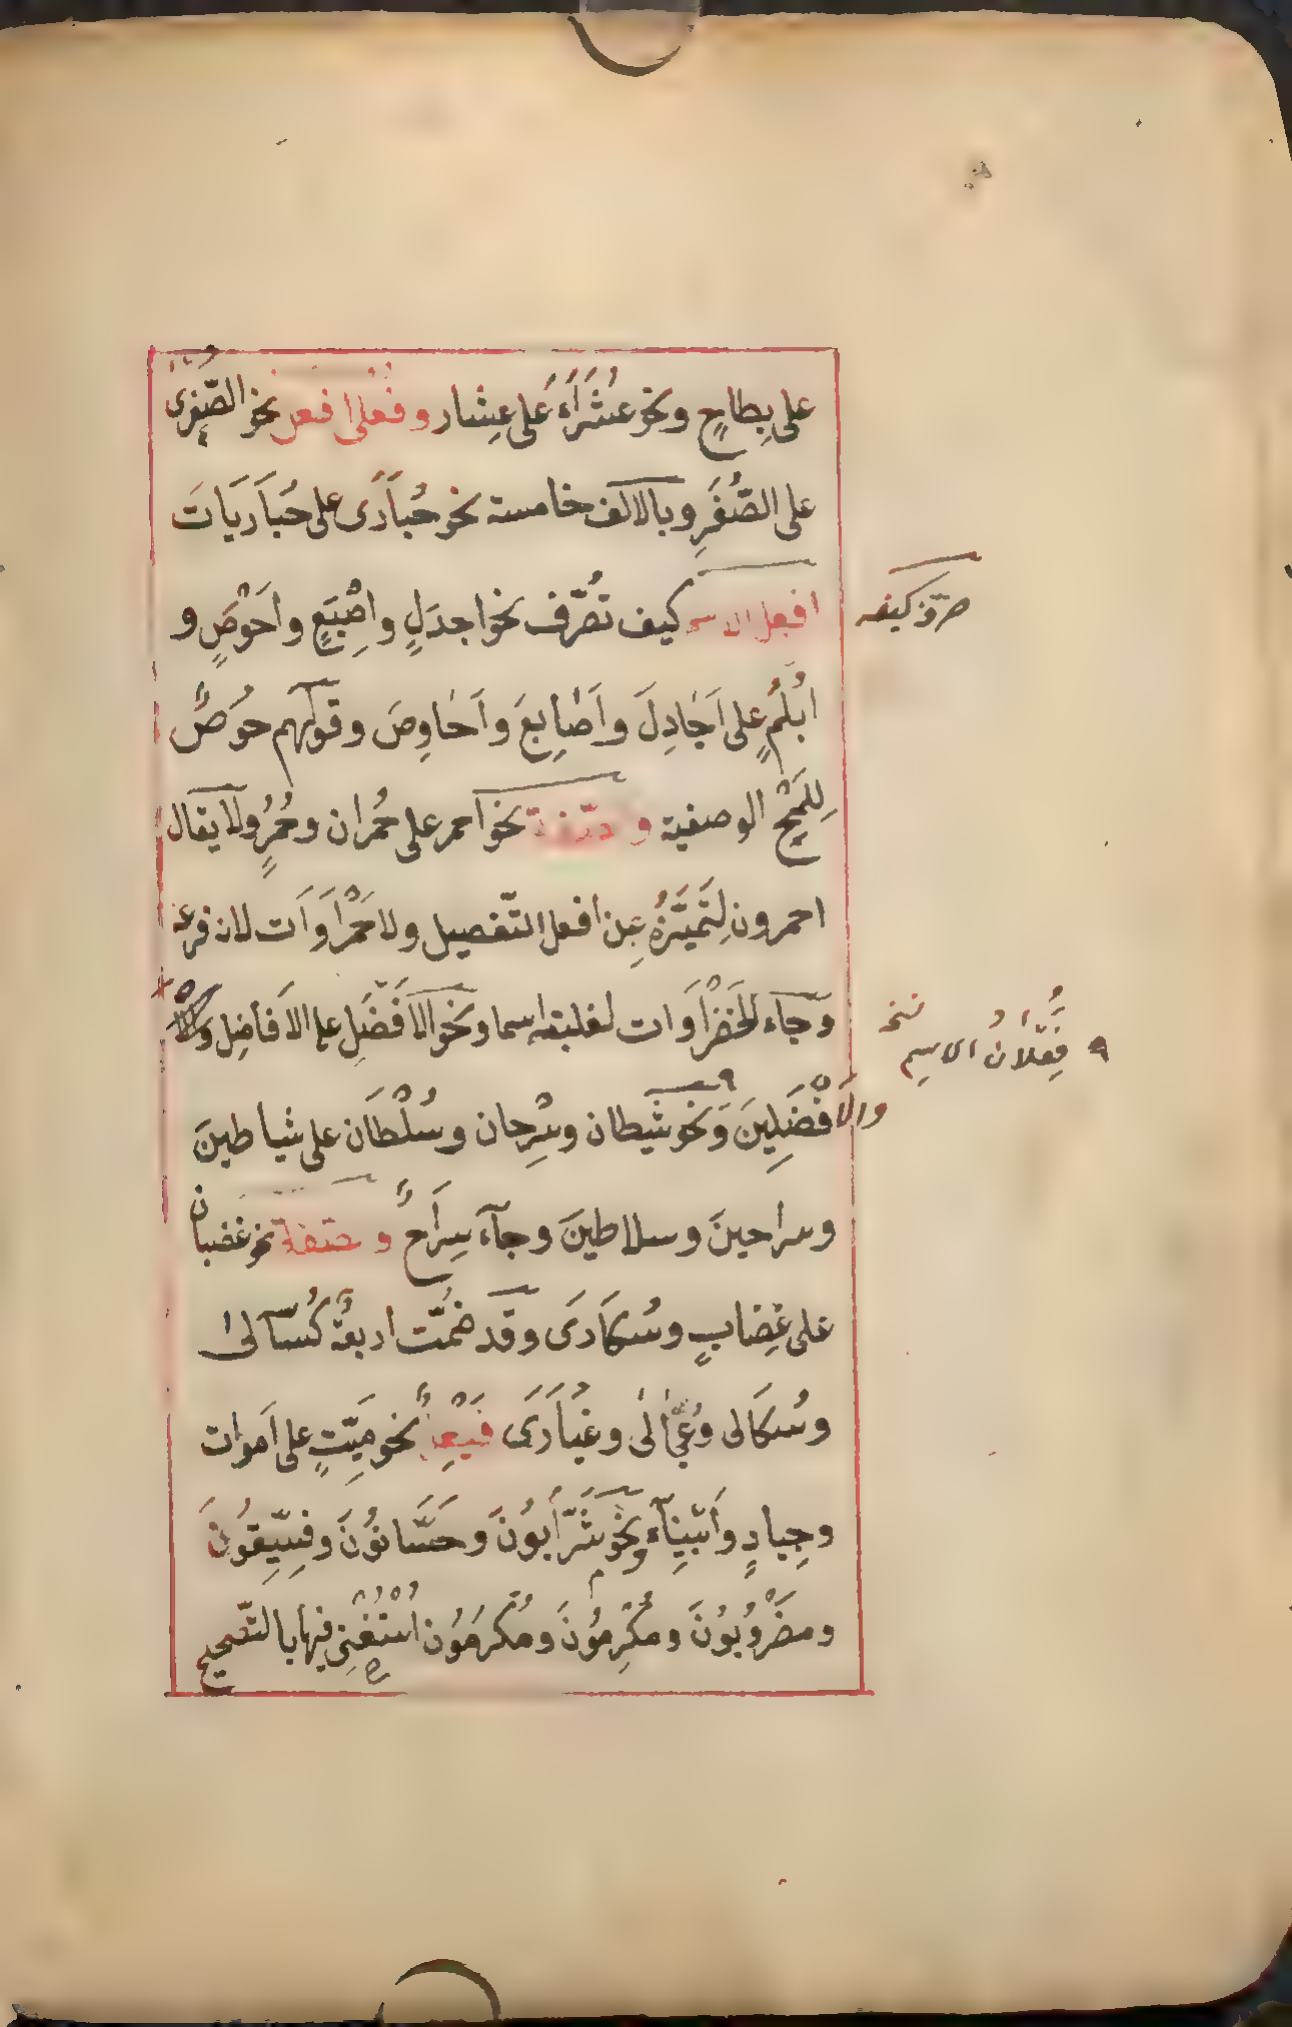 على بِطاحٍ ونحو عُشَرَاءَ على عِشار وفُعْلى افعل نحو الصُّغرىٰ
على الصُّغَرِ وبالالف خامسة نحو حُبَاَرَى على حُبَاَرَيَاتَ
افعل الاسم كيف تُصُرِّف نحو اجدَلٍ واِصْبَعٍ واَحْوَصٍ و
اُبْلُمٍ على اَجَادِلَ واَصَابِعَ واَحَاوِصَ وقولهم حُوصٌ
صرف كيفه
لِلَمْحِ الوصفية وصفة نحو احمر على حُمران وحُمْرٍ ولا يقال
احمرون لِتَمَيُّزِهٖ عن افعل التّفضيل ولا حَمْرَاوَات لانه فرعه
وجاء الخَضْرَاوَات لغلبته اسما ونحو الاَفْضَلِ على الاَفَاضِل
والاَفْضَلِينَ ونحو شيطان وسِرْحان وسُلْطَان على شياطينَ
٩ فعلان الاسم نسخه
وسراحينَ وسلاطينَ وجآءَ سِرَاحٌ وصفة نحو غضبان
على غِضابٍ وسُكَارَى وقد ضمّت اربعة كُسَالىٰ
وسُكَالى وعُجَالىٰ وغُيَارَى فَيْعِلٌ نحو مَيِّتٍ على اَموات
وجِيادٍ واَبْيِنآءَ ونحو شَرَّابُونَ وحَسَّانُونَ وفِسِّيقُونَ
ومَضْرُوبُونَ ومُكْرِمُونَ ومُكْرَمُون اُسْتُغْنِىَ فيها بالتّصحيح